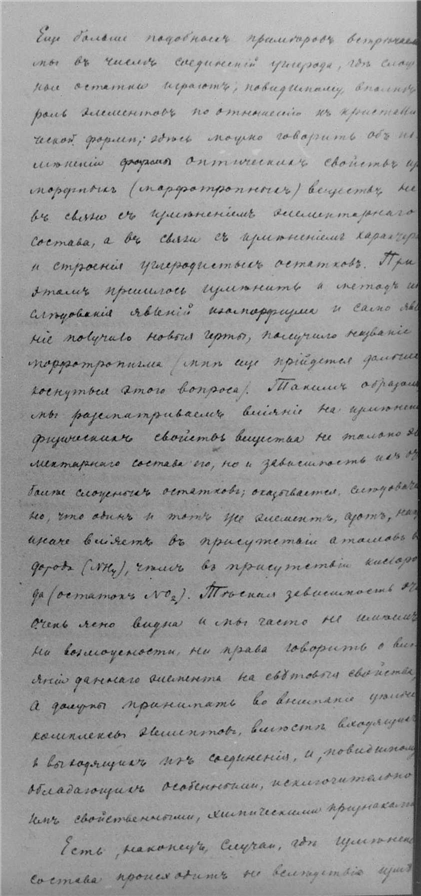 Еще больше подобныхъ примѣровъ встрѣчаемъ
мы въ числѣ соединеній углерода, гдѣ слож
ные остатки играютъ, повидимому, вполнѣ
роль элементовъ по отношенію къ кристалли
ческой формѣ; здѣсь можно говорить объ из
мѣненіи формы оптическихъ свойствъ
морфныхъ (морфотропныхъ) веществъ не
въ связи съ измѣненіемъ элементарнаго
состава, а въ связи съ измѣненіемъ характера
и строенія углеродистыхъ остатковъ. При
этомъ пришлось измѣнить и методъ из
слѣдованія явленій изоморфизма и само явле
ніе получило новыя черты, получило названіе
морфотропизма (мнѣ еще прійдется дальше
коснуться этого вопроса). Такимъ образомъ
мы разсматриваемъ вліяніе на измѣненіе
физическихъ свойствъ вещества не только эле
ментарнаго состава его, но и зависимость ихъ отъ
болѣе сложныхъ остатковъ; оказывается, слѣдователь
но, что одинъ и тотъ же элементъ, азотъ, напр.
иначе вліяетъ въ присутствіи атомовъ во
дорода (NH₂), чѣмъ въ присутствіи кислоро
да (остатокъ NO₂). Тѣсная зависимость
очень ясно видна и мы часто не имѣемъ
ни возможности, ни права говорить о влі
яніи даннаго элемента на свѣтовыя свойства,
а должны принимать во вниманіе
комплексы элементовъ, вмѣстѣ входящихъ
и выходящихъ изъ соединенія, и, повидимому,
обладающихъ особенными, исключительно
имъ свойственными, химическими признаками.
Есть, наконецъ, случаи, гдѣ измѣненіе
состава происходитъ не вслѣдствіи